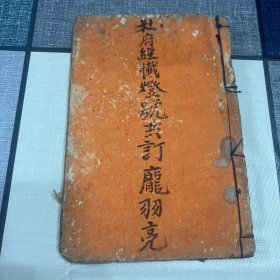 社府經懺燈號共訂 龐羽亮